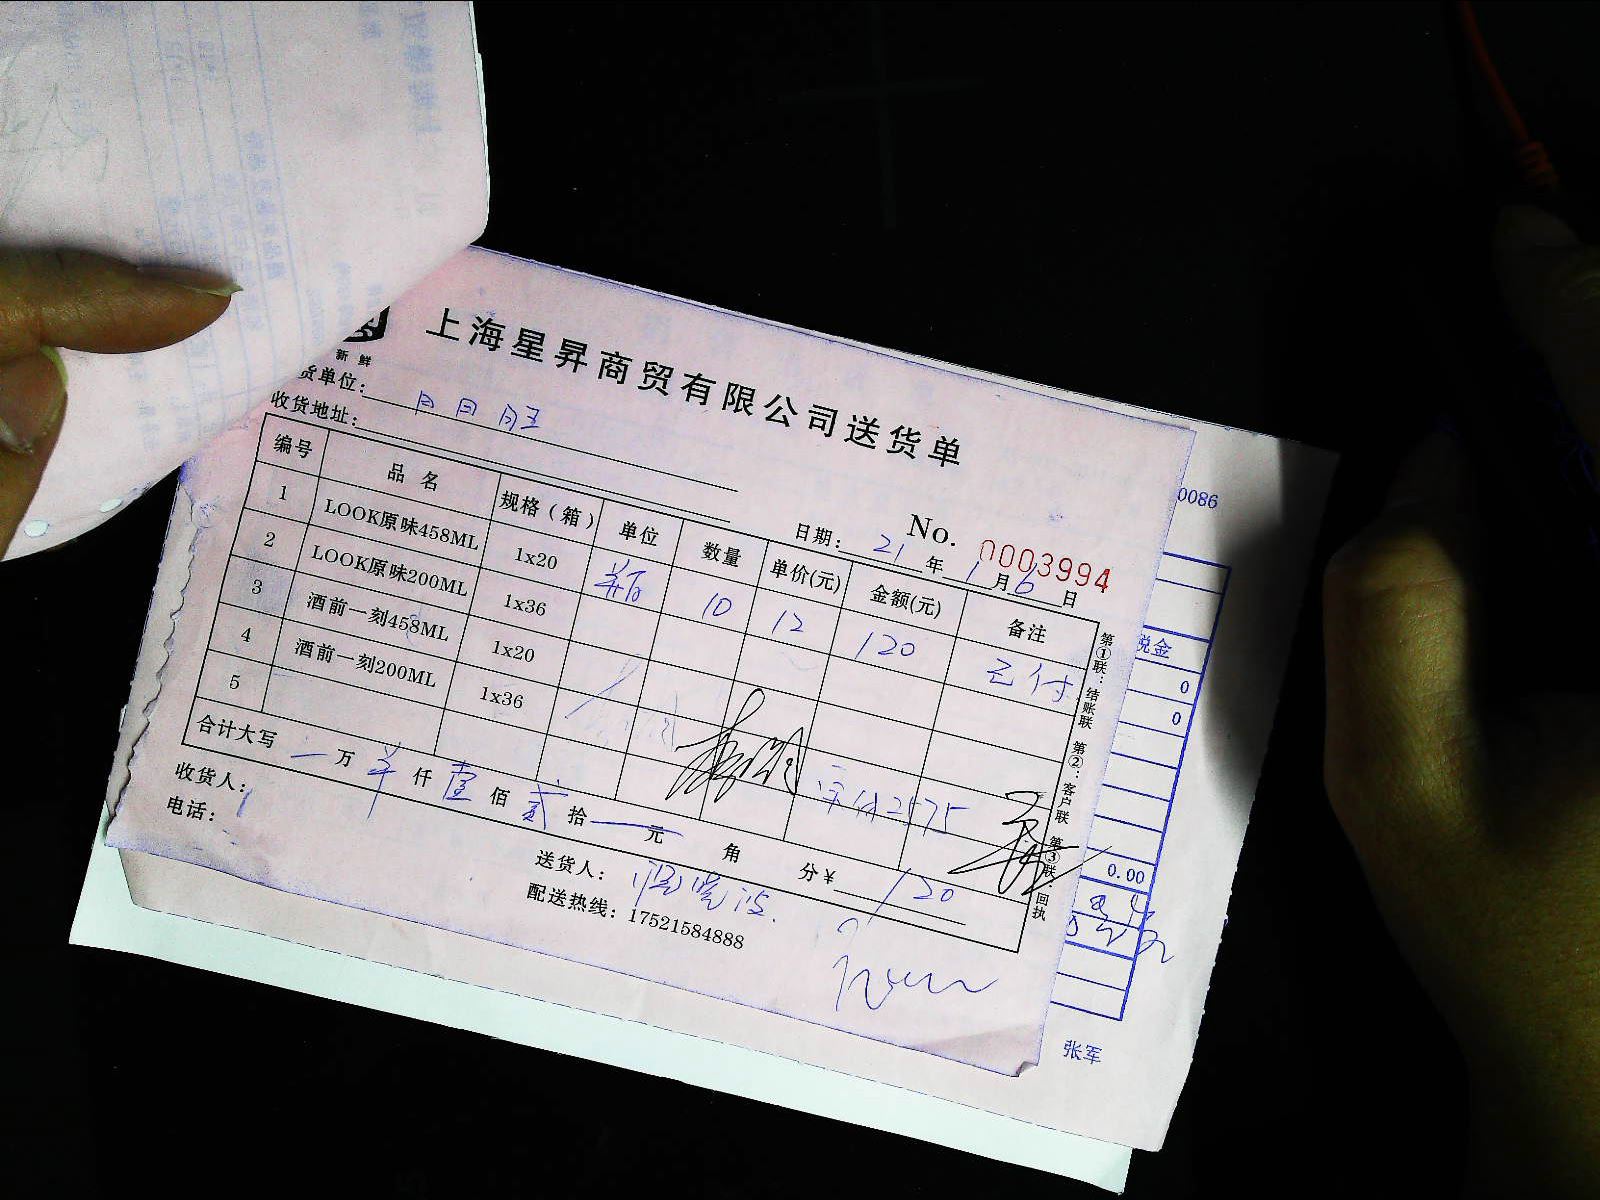 上海星昇商贸有限公司送货单
新鲜
货单位: 日日旺
收货地址:
No. 0003994
日期: 21年1月6日
编号 品名 规格(箱) 单位 数量 单价(元) 金额(元) 备注
1 LOOK原味458ML 1x20 瓶 10 12 120 已付
2 LOOK原味200ML 1x36
3 酒前一刻458ML 1x20
4 酒前一刻200ML 1x36
5
合计大写 万 仟 壹 佰 贰 拾 元 角 分 ¥ 120
收货人:
电话:
送货人:
配送热线: 17521584888
第①联: 结账联 第②: 客户联 第③联: 回执
0086
税金
0
0
0.00
张军